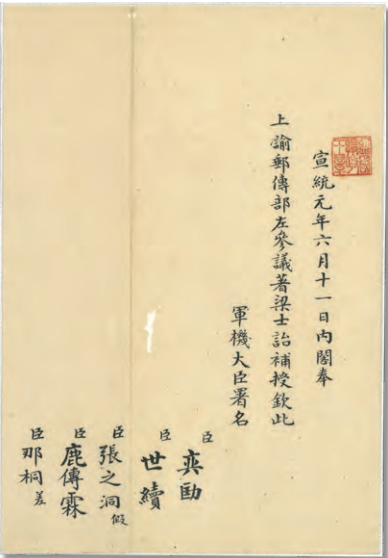 宣統元年六月十一日內閣奉
上諭郵傳部左參議著梁士詒補授欽此
軍機大臣署名
臣奕劻
臣世續
臣張之洞假
臣鹿傳霖
臣那桐差